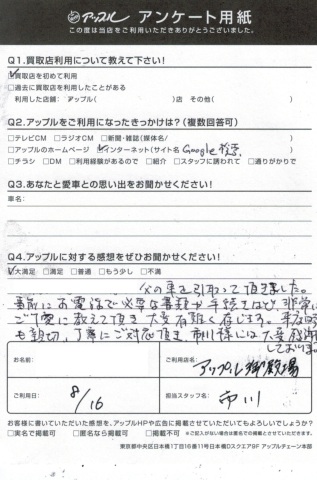 アップル アンケート用紙
この度は当店をご利用いただきありがとうございました。
Q1.買取店利用について教えて下さい!
☑買取店を初めて利用
□過去に買取店を利用したことがある
利用した店舗: アップル( )店 その他( )
Q2.アップルをご利用になったきっかけは?(複数回答可)
□テレビCM □ラジオCM □新聞・雑誌(媒体名/ )
□アップルのホームページ ☑インターネット(サイト名 Google 検索 )
□チラシ □DM □利用経験があるので □紹介 □スタッフに誘われて □通りがかりで
Q3.あなたと愛車との思い出をお聞かせください!
車名:
Q4.アップルに対する感想をぜひお聞かせください!
☑大満足 □満足 □普通 □もう少し □不満
父の車を引取って頂きました。
事前にお電話で必要な書類や手続きなど、非常に
ご丁寧に教えて頂き大変有難く存じます。
も親切、丁寧にご対応頂き、市川様には大変感謝
しております。
お名前:
ご利用店名: アップル御殿場
ご利用日: 8/16
担当スタッフ名: 市川
お客様に書いていただいた感想を、アップルHPや広告に掲載させていただいてもよろしいでしょうか?
□実名で掲載可 □匿名なら掲載可 □掲載不可 ※ご記入がない場合は匿名での掲載とさせていただきます。
東京都中央区日本橋1丁目16番11号日本橋DスクエアBF アップルチェーン本部